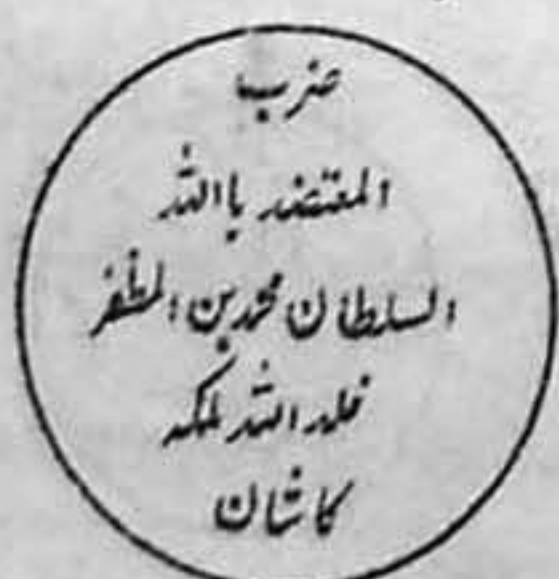 ضرب
المعتضد باالله
السلطان محمد بن المظفر
خلد الله ملكه
كاشان